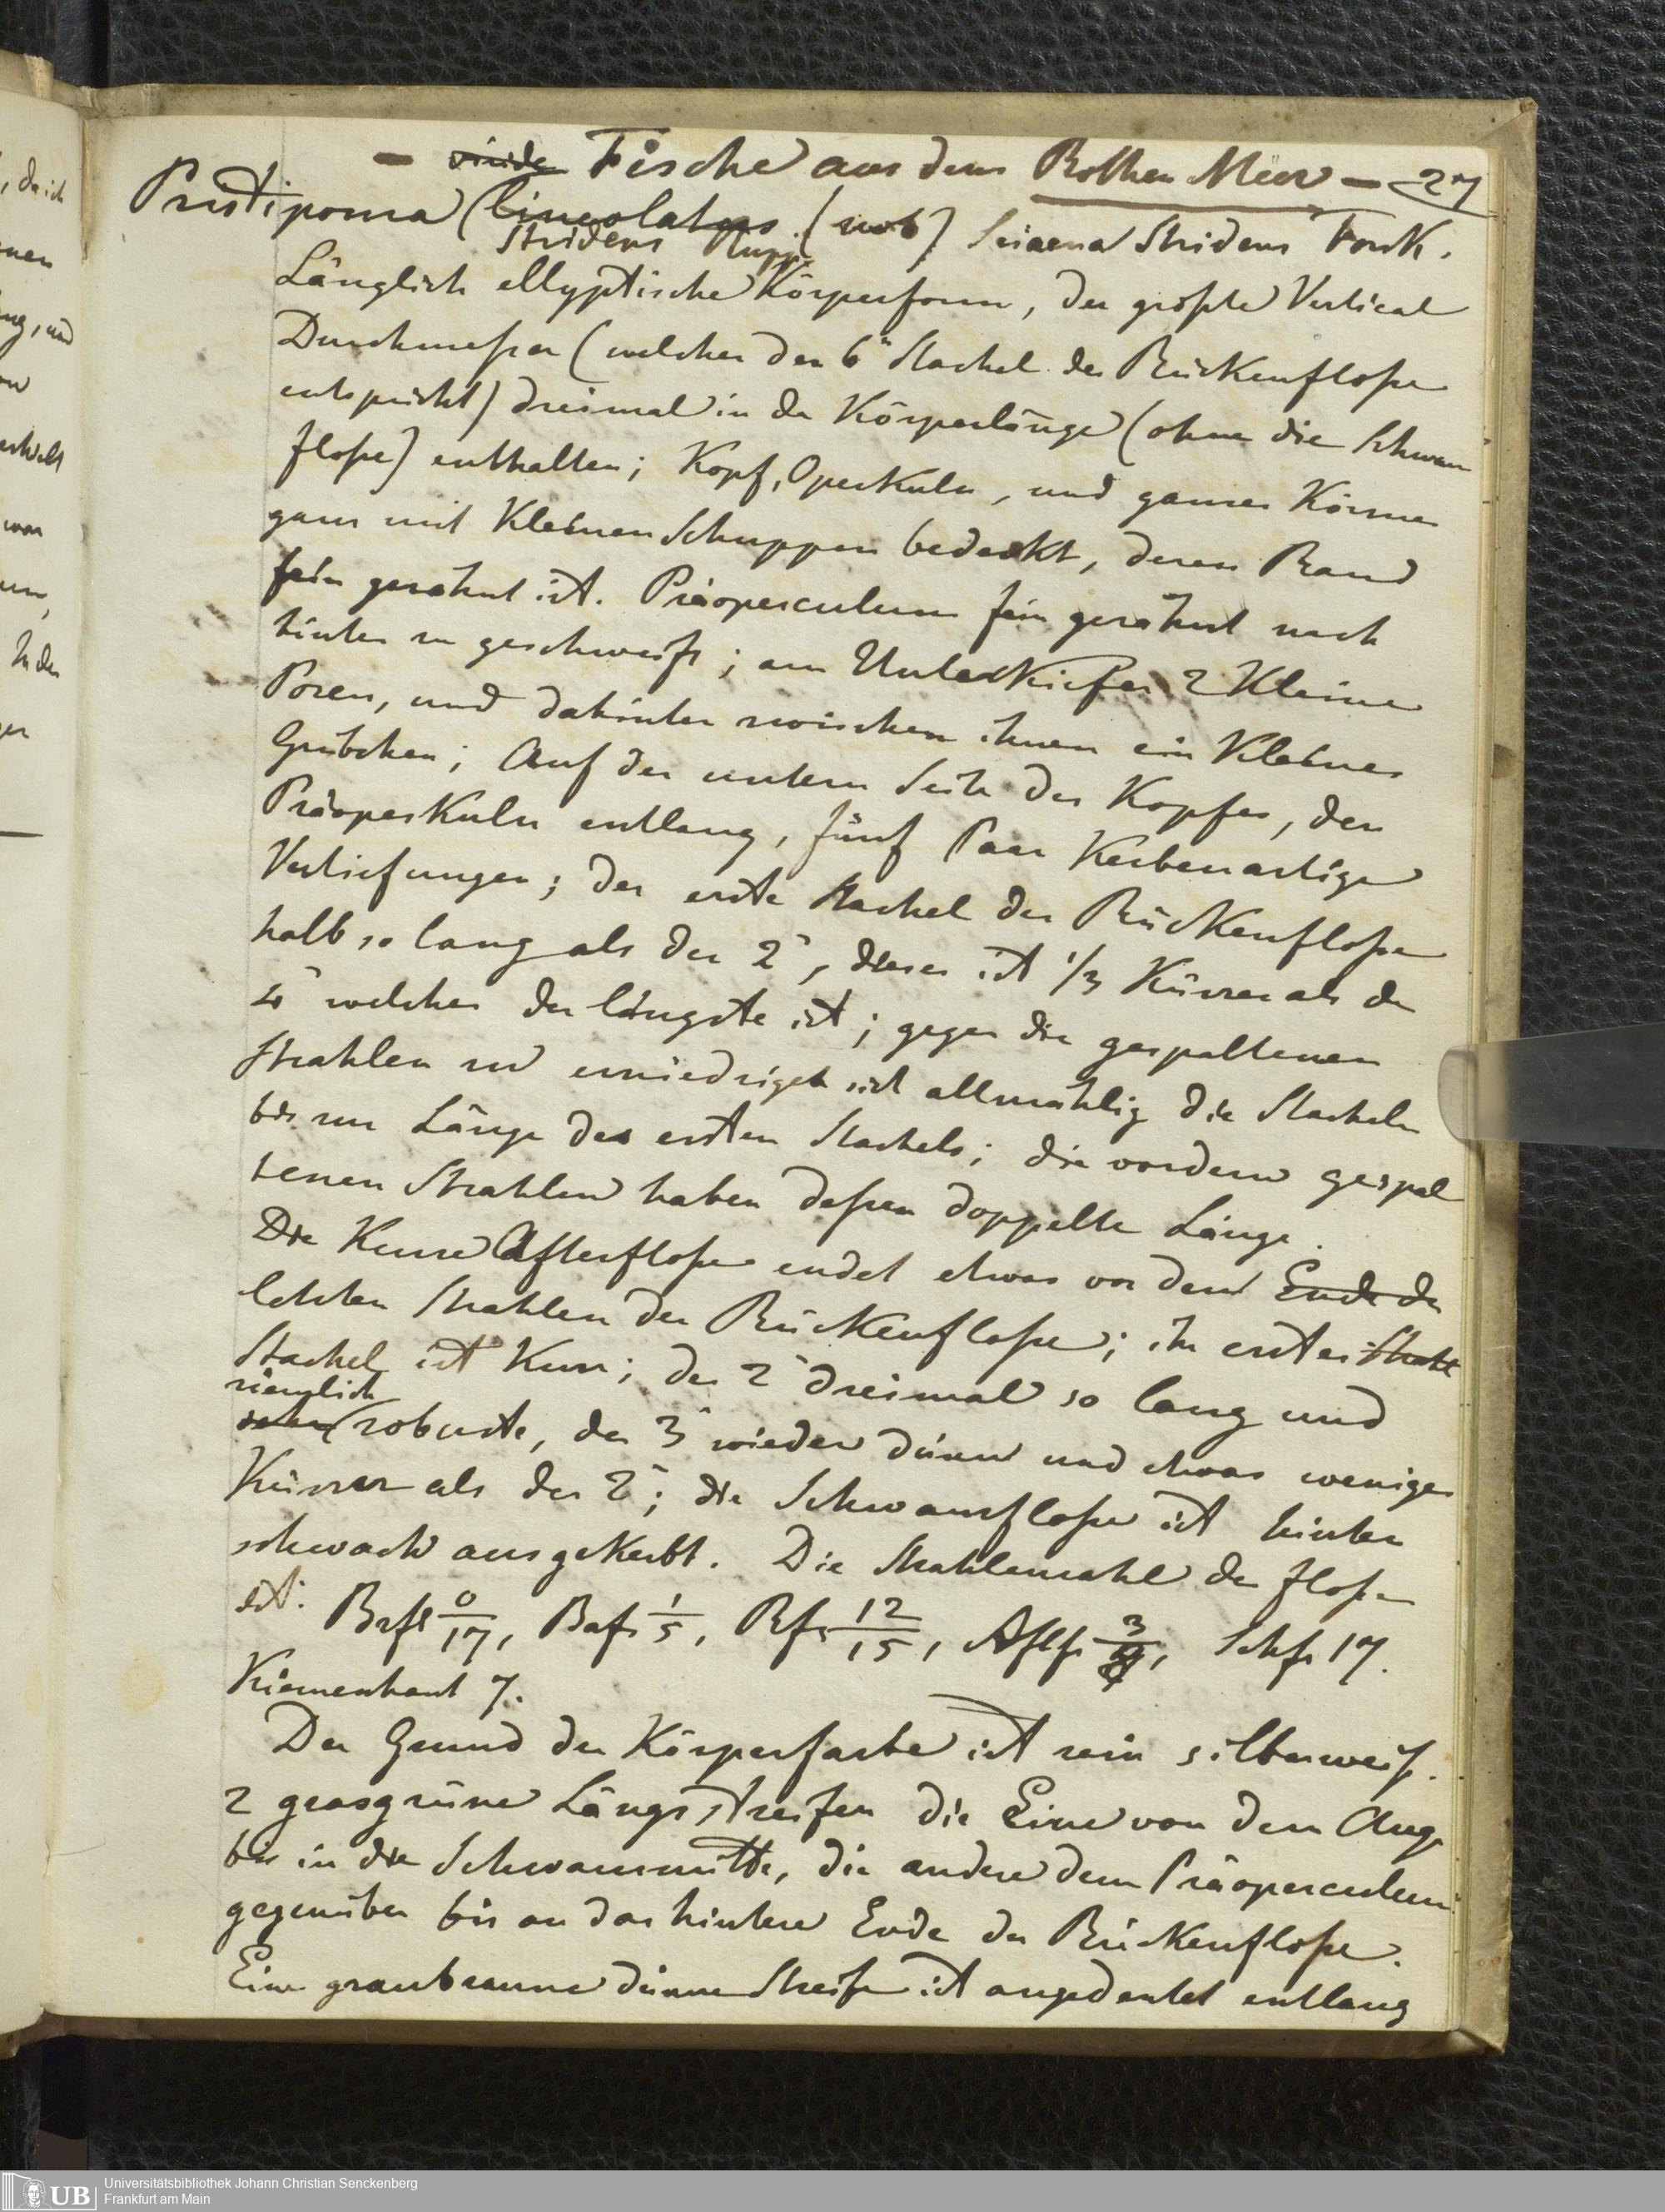 , da ich
– Fische aus dem Rothen Meer – 27
Pristipoma (lineolatus (nob) Sciaena Stridens Forsk.
Stridens Rupp.
Länglich ellyptische Körperform, der größte Vertical
Durchmeßer (welcher den 6ⁿ Stachel der Rückenfloße
entspricht) dreimal in der Körperlänge (ohne die Schwan
floße) enthalten; Kopf, Operkuln, und ganzer Körper
ganz mit kleinen Schuppen bedeckt, deren Rand
fein gezähnt ist. Präoperculum fein gezähnt nach
hinten zu geschweift; am Unterkiefer 2 kleine
Poren, und dahinter zwischen ihnen ein kleines
Grübchen; Auf der untern Seite des Kopfes, den
Präoperkuln entlang, fünf Paar Kerbenartige
Vertiefungen; der erste Stachel der Rückenfloße
halb so lang als der 2ᵉ, dieser ist 1/3 kürzer als der
4ᵉ welcher der längste ist; gegen die gespaltenen
Strahlen zu erniedrigen sich allmählig die Stacheln
bis zur Länge des ersten Stachels; die vordern gespal
tenen Strahlen haben deßen doppelte Länge.
Die kurze Afterfloße endet etwas vor dem Ende der
letzten Strahlen der Rückenfloße; ihr erster Strahl
Stachel ist kurz; der 2ᵉ dreimal so lang und
ziemlich
sehr robuste, der 3ᵉ wieder dünn und etwas weniger
kürzer als der 2ᵉ; die Schwanzfloße ist hinten
schwach ausgekerbt. Die Strahlenzahl der Floßen
ist: Brfl 0/17, Baf. 1/5, Rf. 12/15, Aflf. 3/, Schf. 17.
Kiemenhaut 7.
Der Grund der Körperfarbe ist rein silberweiß.
2 grasgrüne Längsstreifen die Eine von dem Auge
bis in die Schwanzmitte, die andere dem Präoperculum
gegenüber bis an das hintere Ende der Rückenfloße.
Eine graubraune dünne Streife ist angedeutet entlang
Universitätsbibliothek Johann Christian Senckenberg
Frankfurt am Main
UB